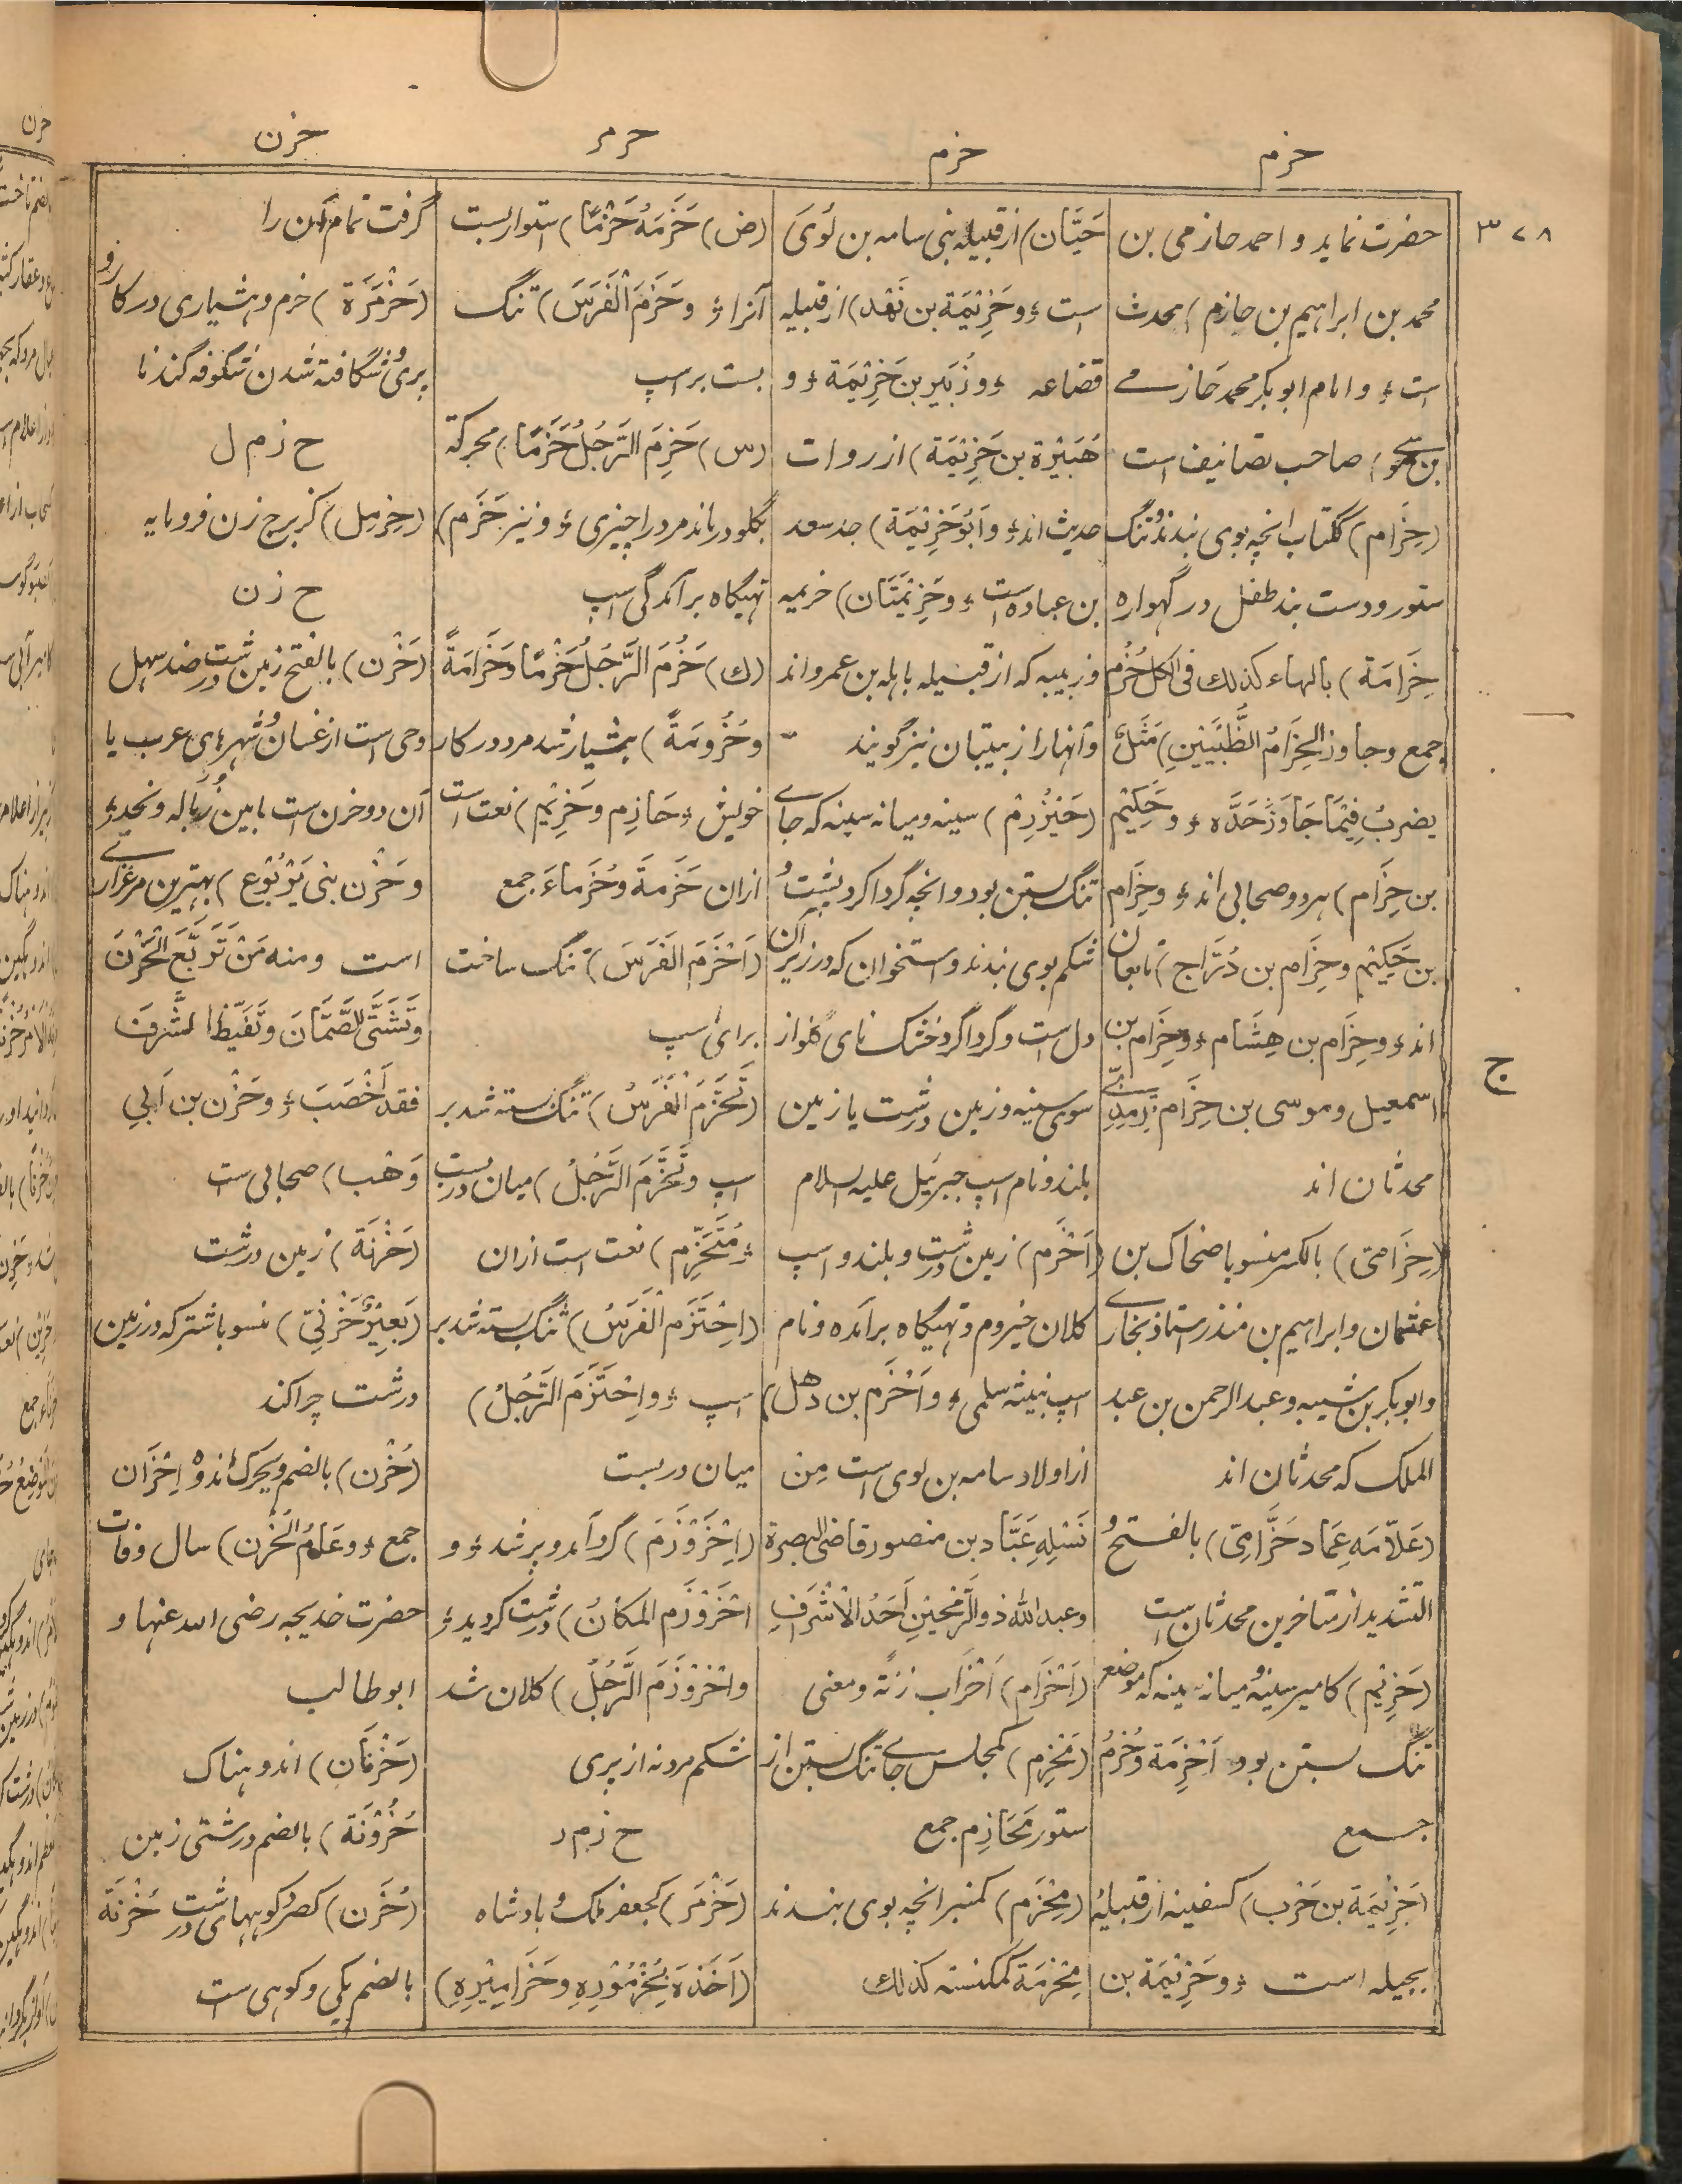 حزم
حزم
حزمر
حزن
۳۷۸
حضرت نماید و احمد حازمی بن
محمد بن ابراہیم بن حازم) محدث
است ؛ و امام ابوبکر محمد حازمے
صاحب تصانیف است
(حِزَام) ککتاب انچہ بوی بندند تنگ
ستور و دست بند طفل در گہوارہ
حِزَامَة) بالہاء کذلك فی الکل حُزُم
جمع و جاوز الحِزَامُ الطُّبْیَیْنِ) مَثَلٌ
یضربُ فِیْمَا جَاوَزَ حَدَّہ ؛ و حَکِیْم
بن حِزَام) ہردو صحابی اند ؛ و حِزَام
بن حَکِیْم و حِزَام بن دُرَّاج) تابعان
اند ؛ و حِزَام بن هِشَام ؛ و حِزَام بن
اسمعیل و موسی بن حِزَام ترمذی
محدثان اند
(حِزَامِیّ) بالکسر منسوبا ضحاک بن
عثمان و ابراہیم بن منذر استاذ بخارے
و ابوبکر بن شیبہ و عبد الرحمن بن عبد
الملک کہ محدثان اند
(عَلَّامَه عِمَاد حَزَّامِیّ) بالفتح و
التشدید از متاخرین محدثان است
(حَزِیْم) کامیر سینہ و میانہ سینہ کہ موضع
تنگ بستن بود اَحْزِمَة و حُزُمٌ
جمع
(حَزِیْمَة بن حَرْب) کسفینہ از قبیلۂ
بجیلہ است ؛ و حَزِیْمَة بن
حَیَّان) از قبیلہ بنی سامہ بن لُوَیّ
است ؛ و حَزِیْمَة بن نَهْد) از قبیلہ
قضاعہ ؛ و زُبَیر بن حَزِیْمَة ؛ و
هُبَیْرَة بن حَزِیْمَة) از روات
حدیث اند ؛ و اَبُو حَزِیْمَة) جد سعد
بن عبادہ است ؛ و حَزِیْمَتَان) حزیمہ
و زبیبہ کہ از قبیلہ باہلہ بن عمرو اند
و آنہا را زبیبتان نیز گویند
(حَیْزُوْم) سینہ و میانہ سینہ کہ جاے
تنگ بستن بود و انچہ گرداگرد پشت و
شکم بوی بندند و استخوان کہ در زیر آن
دل است و گرداگرد خشک نای گلو از
سوی سینہ و زمین درشت یا زمین
بلند و نام اسپ جبرئیل علیہ السلام
(اَحْزَم) زمین درشت و بلند و اسپ
کلان حیزوم و تہیگاہ برآمدہ و نام
اسپ نبیشہ سلمی ؛ و اَحْزَم بن ذهل)
از اولاد سامہ بن لوی است مِن
نَسْلِهِ عَبَّاد بن منصور قاضی البصرة
و عبد الله ذو الرُّمْحَیْنِ اَحَدُ الْاَشْرَافِ
(اَحْزَام) اَحْزَاب زنةً و معنی
(مَحْزِم) کمجلس جاے تنگ بستن از
ستور مَحَازِم جمع
(مِحْزَم) کمنبر انچہ بوی بندند
مِحْزَمَة کمکنسہ کذلك
(ض) حَزَمَهُ حَزْمًا) استوار بست
آنرا ؛ و حَزَمَ الْفَرَسَ) تنگ
بست بر اسپ
(س) حَزِمَ الرَّجُلُ حَزَمًا) محرکة
بگلو در ماند مرد را چیزی ؛ و نیز حَزَم)
تہیگاہ برآمدگی اسپ
(ك) حَزُمَ الرَّجُلُ حَزْمًا و حَزَامَةً
و حُزُومَةً) ہشیار شد مرد در کار
خویش ؛ حَازِم و حَزِیْم) نعت است
ازان حَزَمَة و حُزَمَاءَ جمع
(اَحْزَمَ الْفَرَسَ) تنگ ساخت
برای اسپ
(تَحَزَّمَ الْفَرَسُ) تنگ بستہ شد بر
اسپ و تَحَزَّمَ الرَّجُلُ) میان در بست
؛ مُتَحَزِّم) نعت است ازان
(اِحْتَزَمَ الْفَرَسُ) تنگ بستہ شد بر
اسپ ؛ و اِحْتَزَمَ الرَّجُلُ)
میان در بست
(اِحْزَوْزَمَ) گرد آمد و پر شد ؛ و
احْزَوْزَم المکانُ) درشت گردید ؛
و احْزَوْزَمَ الرَّجُلُ) کلان شد
شکم مرد نہ از پری
ح زم ر
(حَزْمَر) کجعفر ملک و بادشاہ
(اَخَذَهُ بِحُزْمُوْرِهِ و حَزَامِیْرِهِ)
گرفت تمام آن را
(حَزْمَرَة) حزم و ہشیاری در کار و
پری و شگافتہ شدن شگوفہ گندنا
ح زم ل
(حِزْمِل) کزبرج زن فرومایہ
ح زن
(حَزْن) بالفتح زمین درشت ضد سہل
و حی است از غسان و شہر ہای عرب یا
آن دو حزن است ما بین زبالہ و نجد ؛
و حَزْن بنی یَرْبُوْع) بہترین مرغزارے
است و منه مَنْ تَرَبَّعَ الْحَزْنَ
وَتَشَتَّى الصَّمَّانَ وَتَقَیَّظَ الشَّرَفَ
فقد اَخْصَبَ ؛ و حَزْن بن اَبی
وَهْب) صحابی ست
(حَزْنَة) زمین درشت
(بَعِیْرٌ حَزْنِیّ) منسوبا شتر کہ در زمین
درشت چرا کند
(حُزْن) بالضم و یحرک اندوہ اَحْزَان
جمع ؛ و عَامُ الْحُزْن) سال وفات
حضرت خدیجہ رضی اللہ عنہا و
ابو طالب
(حَزْنَان) اندوہناک
حُزُوْنَة) بالضم درشتی زمین
(حُزَن) کصرد کوہہای درشت حُزْنَة
بالضم یکی و کوہی ست
ج